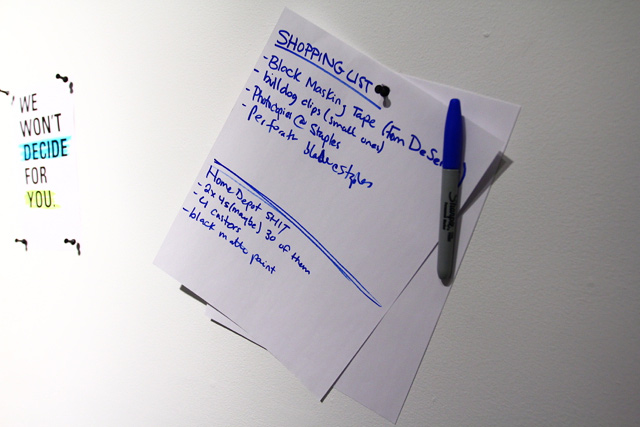 WE
WON'T
DECIDE
FOR
YOU.
SHOPPING LIST
- Black Masking Tape (from DeSer
- bulldog clips (small ones)
- Photocopies @ Staples
- Perforate blade @ staples
Home Depot SHIT
- 2x4s (maybe) 30 of them
- 4 castors
- black matte paint
Sharpie